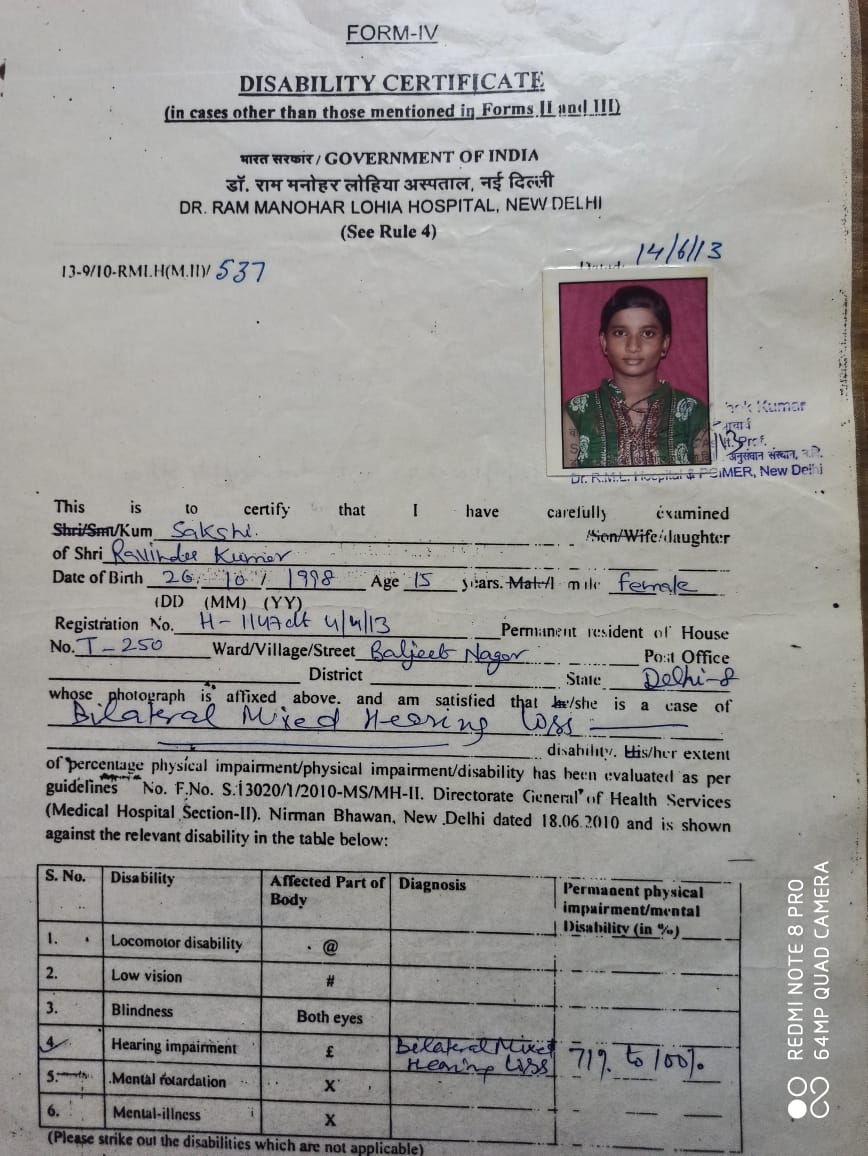 FORM-IV
DISABILITY CERTIFICATE
(in cases other than those mentioned in Forms II and III)
भारत सरकार / GOVERNMENT OF INDIA
डॉ. राम मनोहर लोहिया अस्पताल, नई दिल्ली
DR. RAM MANOHAR LOHIA HOSPITAL, NEW DELHI
(See Rule 4)
13-9/10-RMLH(M.II)/ 537
Dated: 14/6/13
Kumar
Prof.
अनुसंधान संस्थान, न.दि.
Dr. R.M.L. Hospital & PGIMER, New Delhi
This is to certify that I have carefully examined
Shri/Smt/Kum Sakshi. /Son/Wife/daughter
of Shri Ravinder Kumar
Date of Birth 26 / 10 / 1998 Age 15 years. Male/ female
(DD) (MM) (YY)
Registration No. H-1147 dt 4/4/13 Permanent resident of House
No. T-250 Ward/Village/Street Baljeet Nagar Post Office
District State Delhi-8
whose photograph is affixed above, and am satisfied that he/she is a case of
Bilateral Mixed Hearing loss
disability. His/her extent
of percentage physical impairment/physical impairment/disability has been evaluated as per
guidelines No. F.No. S.13020/1/2010-MS/MH-II. Directorate General of Health Services
(Medical Hospital Section-II). Nirman Bhawan, New Delhi dated 18.06.2010 and is shown
against the relevant disability in the table below:
S. No. Disability Affected Part of Body Diagnosis Permanent physical impairment/mental Disability (in %)
1. Locomotor disability @
2. Low vision #
3. Blindness Both eyes
4. Hearing impairment £ Bilateral Mixed Hearing loss 71% to 100%
5. Mental retardation X
6. Mental-illness X
(Please strike out the disabilities which are not applicable)
REDMI NOTE 8 PRO
64MP QUAD CAMERA